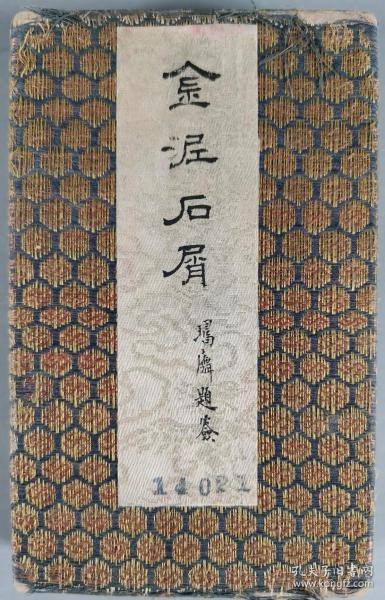 金泥石屑
題簽
14021
孔夫子旧书网
www.kongfz.com